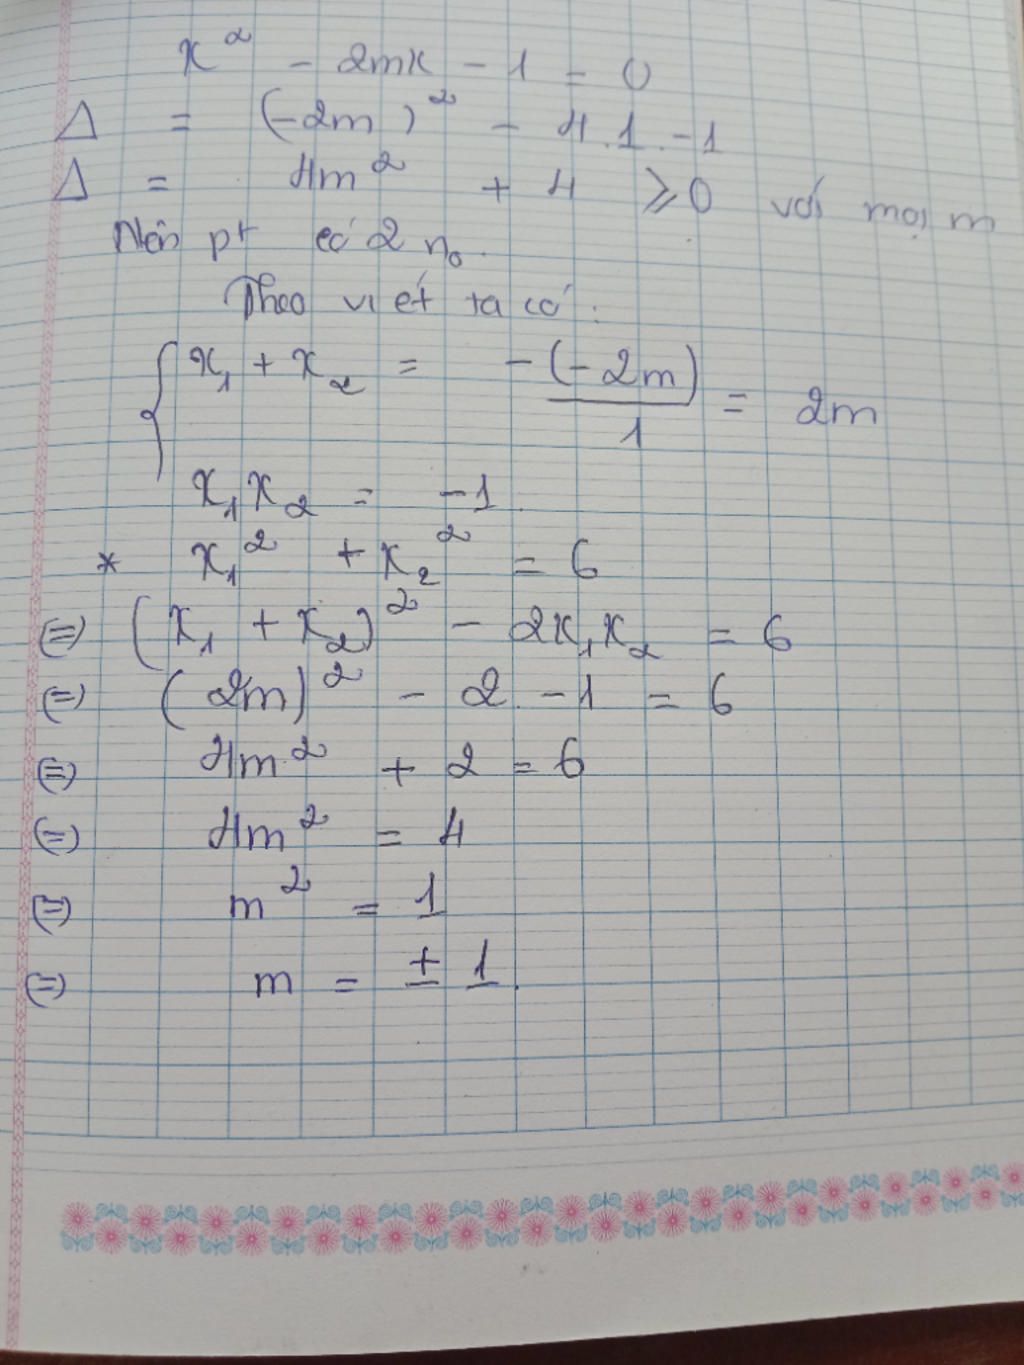 x² - 2mx - 1 = 0
Δ = (-2m)² - 4.1.-1
Δ = 4m² + 4 ⩾0 với mọi m
Nên pt có 2 n₀.
Theo viét ta có:
{ x₁ + x₂ = -(-2m)/1 = 2m
x₁x₂ = -1.
* x₁² + x₂² = 6
(=) (x₁ + x₂)² - 2x₁x₂ = 6
(=) (2m)² - 2.-1 = 6
(=) 4m² + 2 = 6
(=) 4m² = 4
(=) m² = 1
(=) m = ± 1.